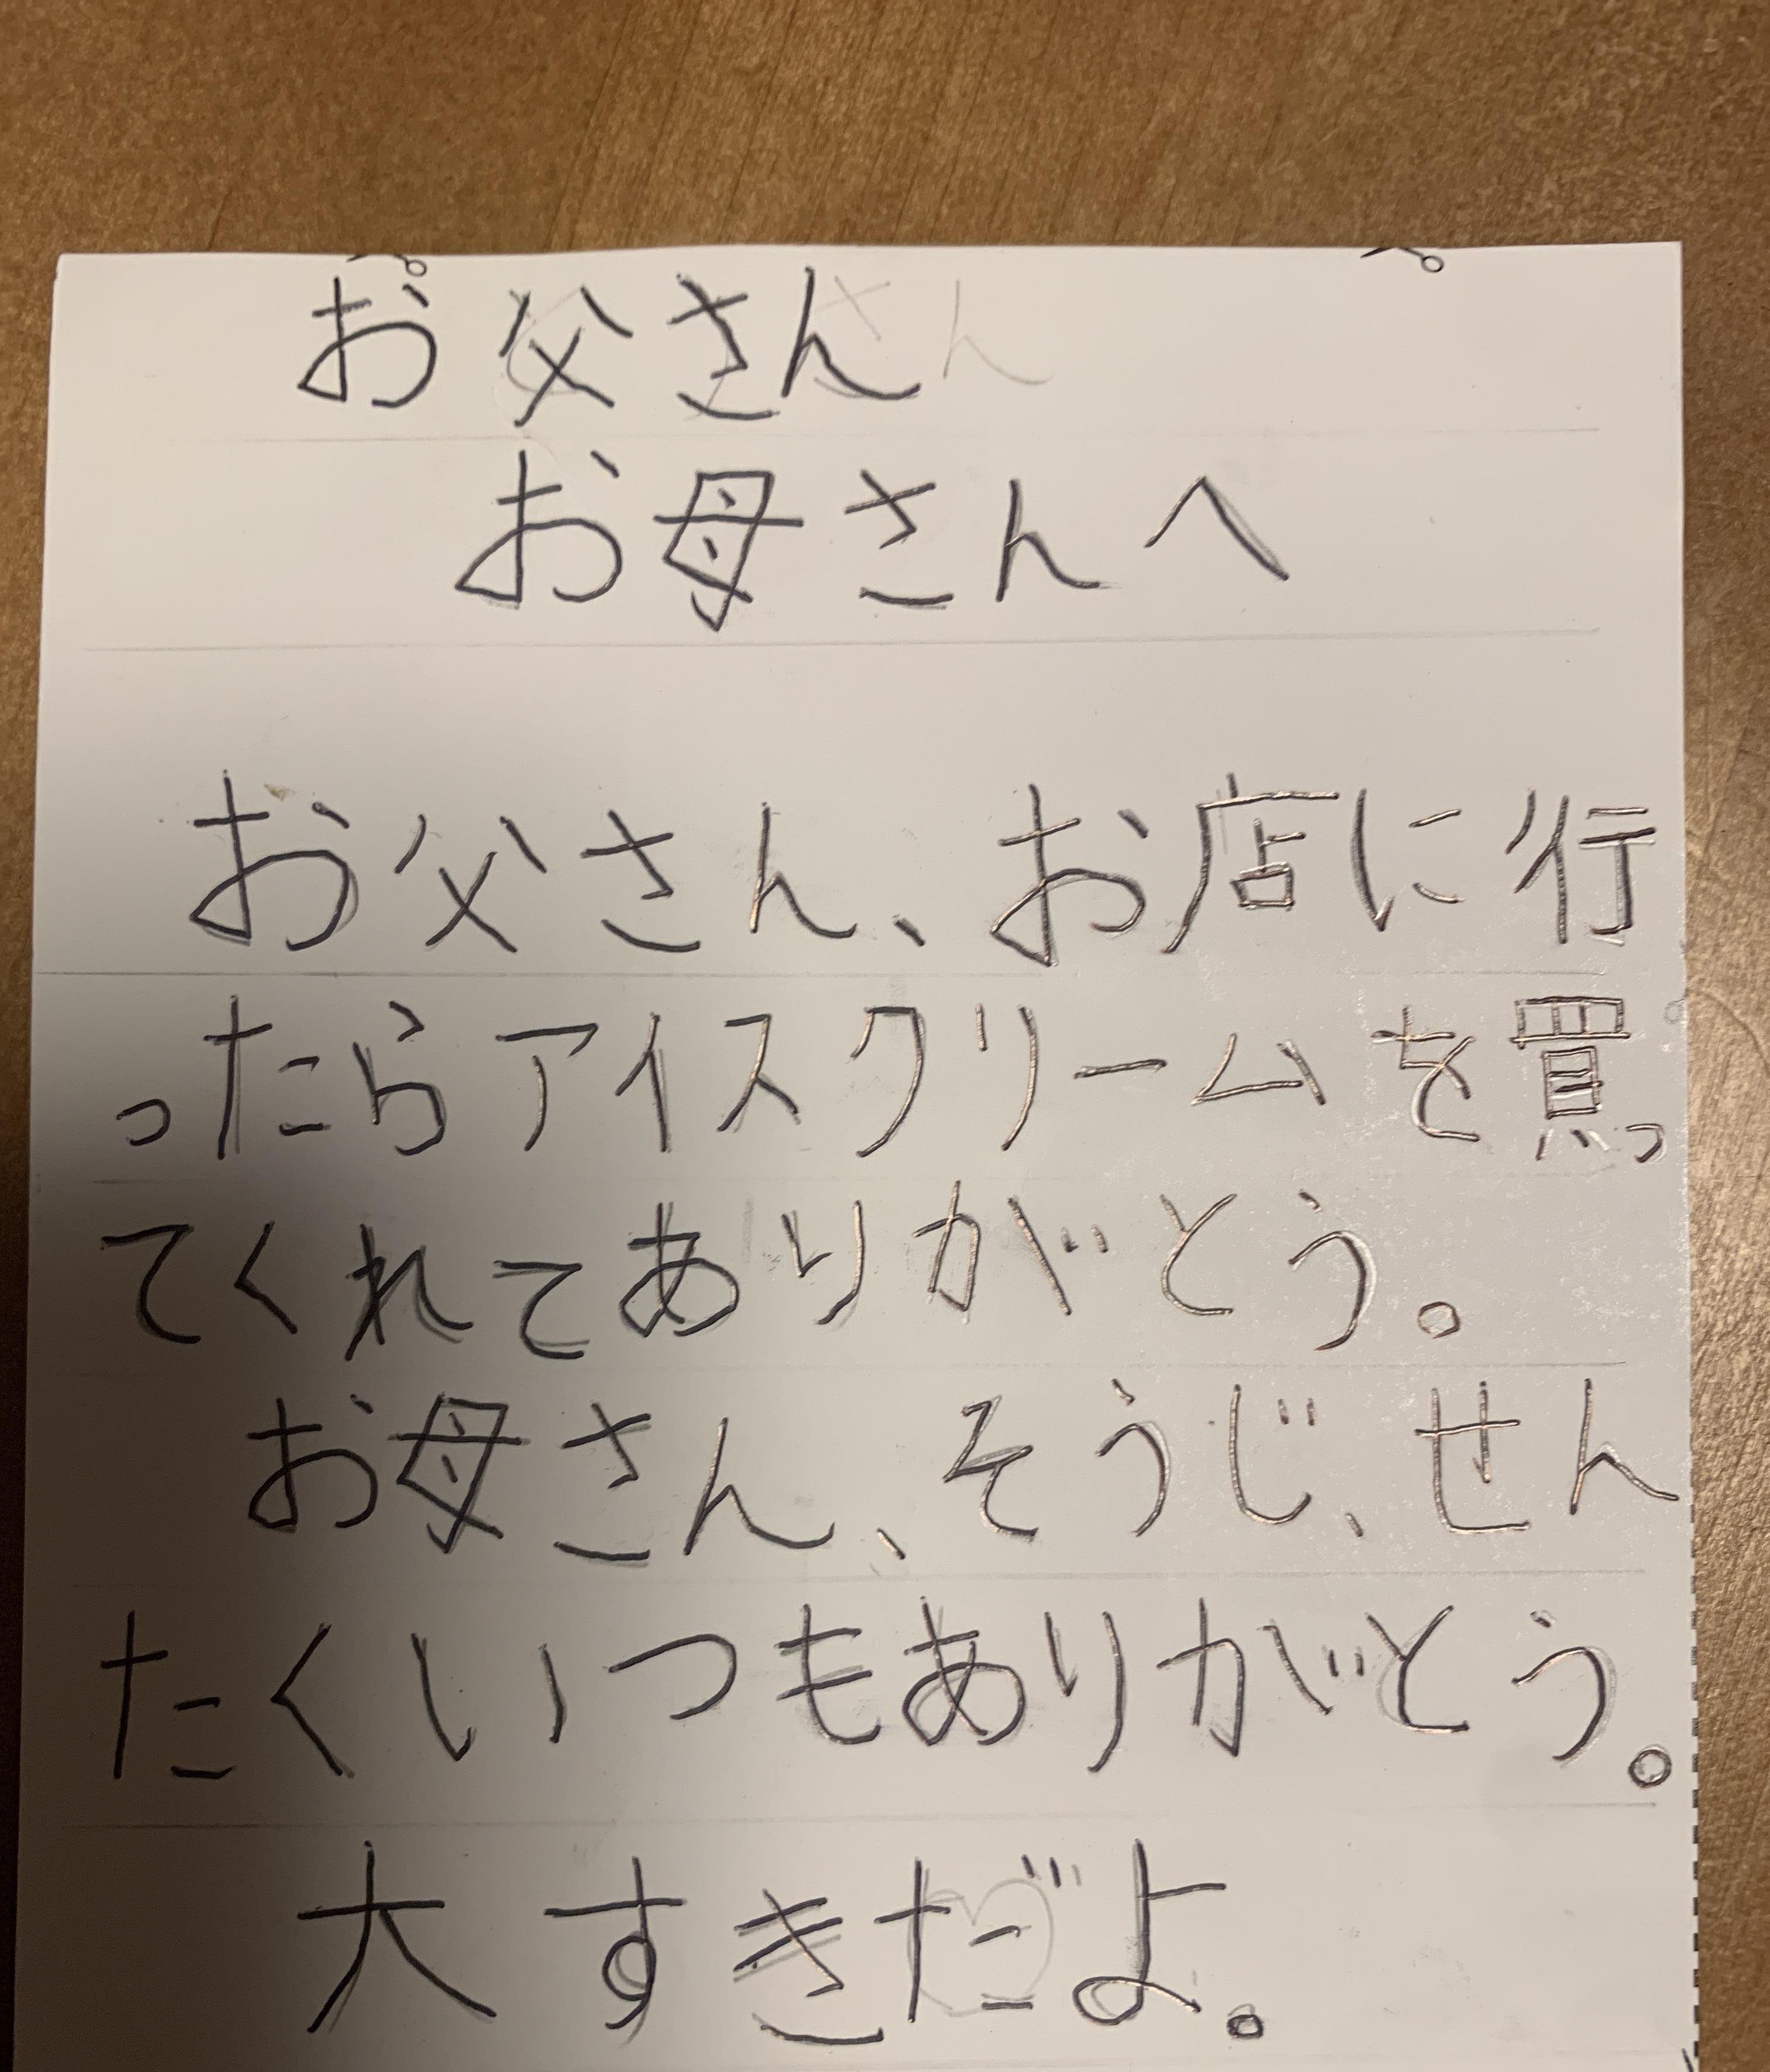 お父さん
お母さんへ
お父さん、お店に行
ったらアイスクリームを買っ
てくれてありがとう。
お母さん、そうじ、せん
たくいつもありがとう。
大すきだよ。